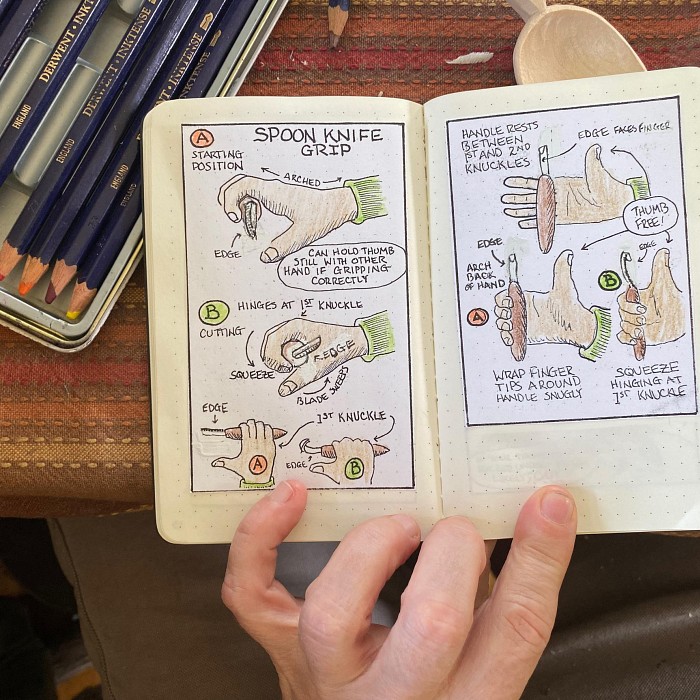 DERWENT · INKTENSE
ENGLAND
DERWENT INKTENSE
ENGLAND
INKTENSE
ENGLAND
ENGLAND
A
SPOON KNIFE
GRIP
STARTING
POSITION
ARCHED
EDGE
CAN HOLD THUMB
STILL WITH OTHER
HAND IF GRIPPING
CORRECTLY
B
HINGES AT 1ST KNUCKLE
CUTTING
EDGE
SQUEEZE
BLADE SWEEPS
EDGE
1ST KNUCKLE
A
EDGE
B
HANDLE RESTS
BETWEEN
1ST AND 2ND
KNUCKLES
EDGE FACES FINGER
THUMB
FREE!
EDGE
EDGE
ARCH
BACK
OF HAND
A
B
WRAP FINGER
TIPS AROUND
HANDLE SNUGLY
SQUEEZE
HINGING AT
1ST KNUCKLE